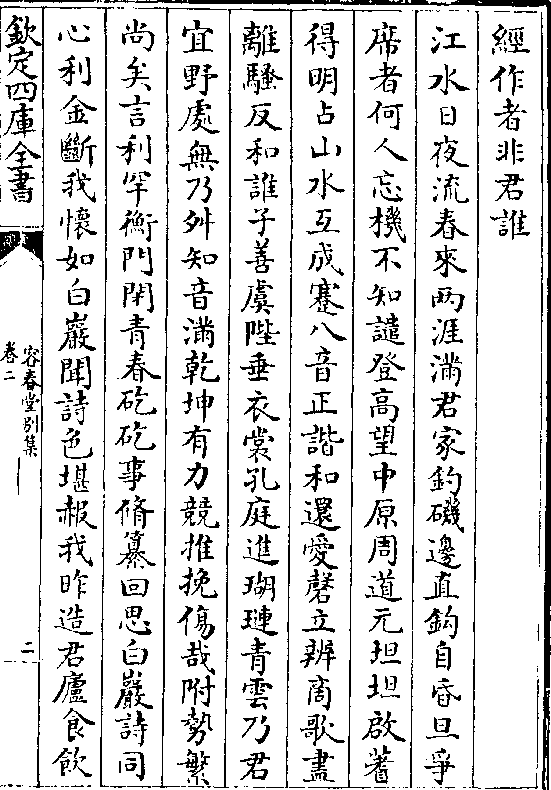 經作者非君誰
江水日夜流春來两涯滿君家釣磯邊直鈎自昏旦爭
席者何人忘機不知讉登高望中原周道元坦坦啟蓍
得明占山水互成蹇八音正諧和還愛磬立辨商歌盡
離騷反和誰子善虞陛垂衣裳孔庭進瑚璉青雲乃君
宜野處無乃舛知音滿乾坤有力競推挽傷哉附勢繁
尚矣言利罕衡門閉青春矻矻事脩纂回思白巖詩同
心利金斷我懷如白巖聞詩色堪赧我昨造君廬食飲
欽定四庫全書
容春堂别集
卷二
二